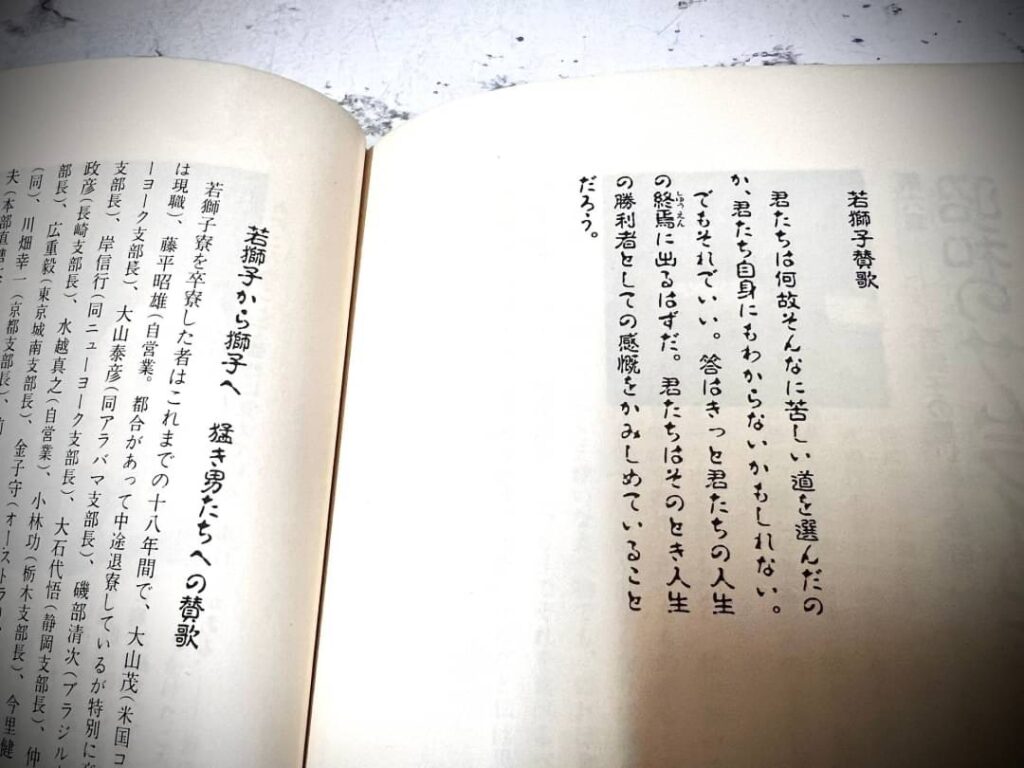 若獅子賛歌
君たちは何故そんなに苦しい道を選んだの
か、君たち自身にもわからないかもしれない。
でもそれでいい。答はきっと君たちの人生
の終焉に出るはずだ。君たちはそのとき人生
の勝利者としての感慨をかみしめていること
だろう。
若獅子から獅子へ 猛き男たちへの賛歌
若獅子寮を卒寮した者はこれまでの十八年間で、大山茂(米国コ
は現職)、藤平昭雄(自営業。都合があって中途退寮しているが特別に
ーヨーク支部長)、大山泰彦(同アラバマ支部長)、磯部清次(ブラジル
支部長)、岸信行(同ニューヨーク支部長)、大石代悟(静岡支部長)、仲
政彦(長崎支部長)、水越真之(自営業)、小林功(栃木支部長)、今里健
部長)、広重毅(東京城南支部長)、金子守(オーストラリ
(同)、川畑幸一(京都支部長)、前
夫(本部直轄